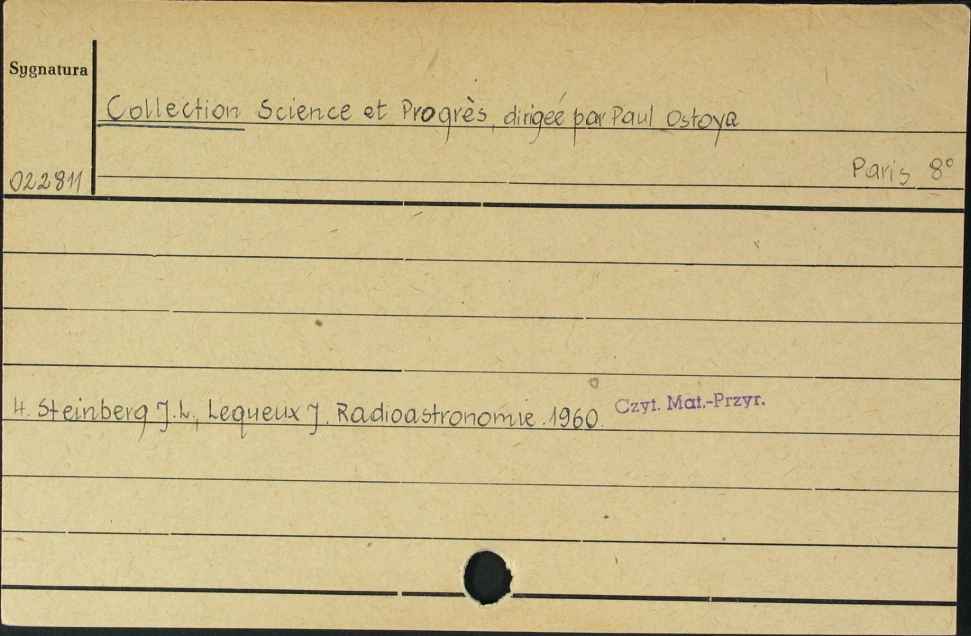 Sygnatura
Collection Science et Progrès, dirigeé par Paul Ostoya
022811
Paris 8°
4. Steinberg J.L., Lequeux J. Radioastronomie. 1960. Czyt. Mat.-Przyr.